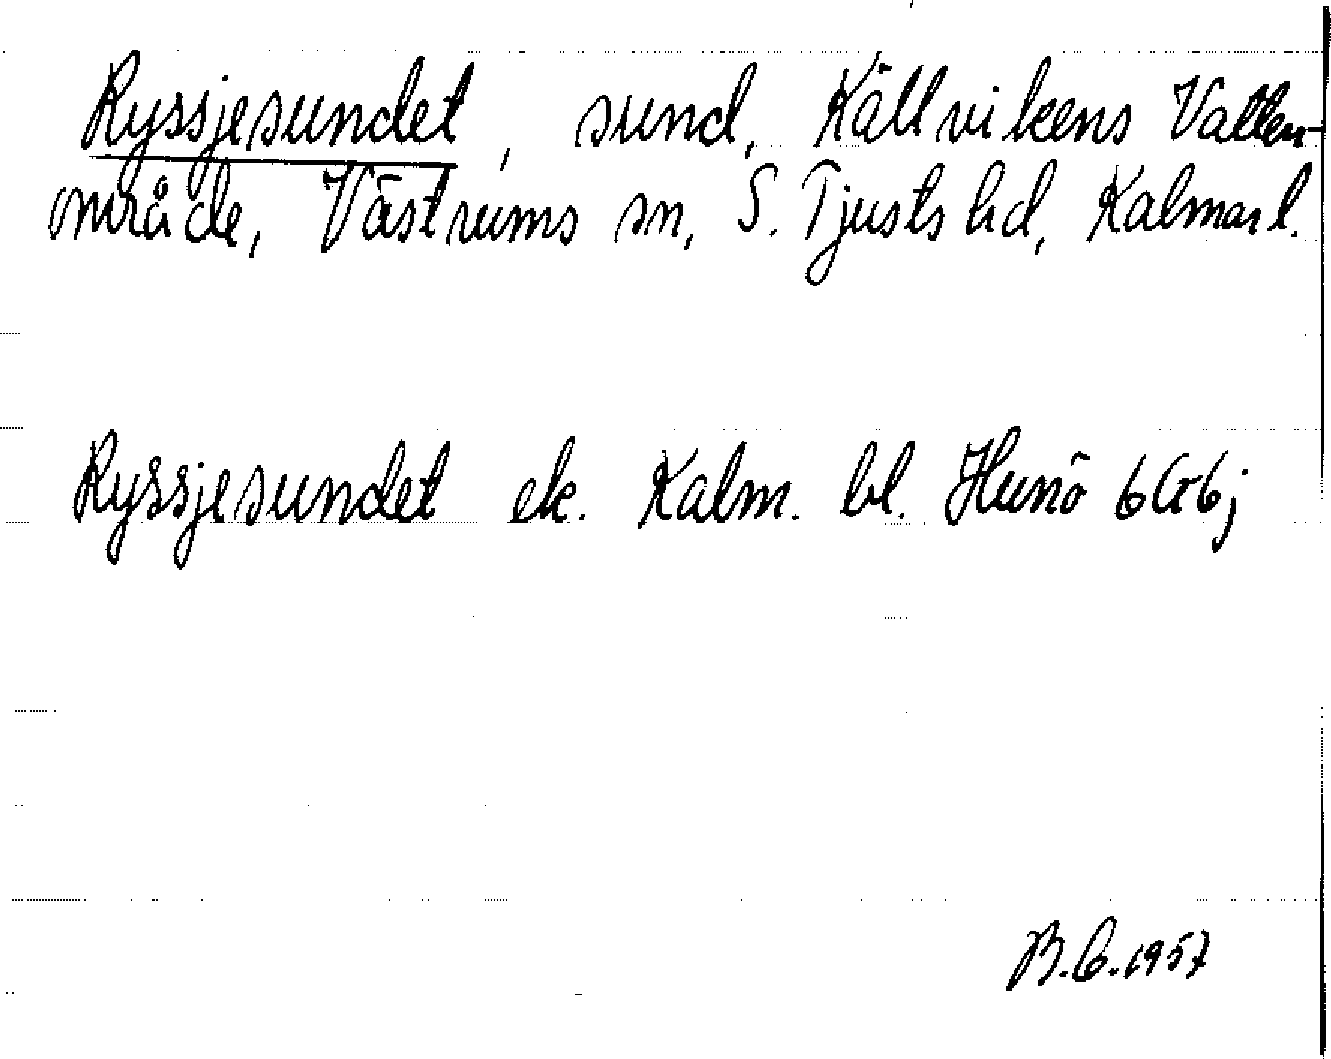 Ryssjesundet, sund, Källvikens Vatten-
område, Västrums sn, S. Tjusts hd, Kalmar l.
Ryssjesundet ek. Kalm. bl. Hunö 6G6j
B.C. 1957